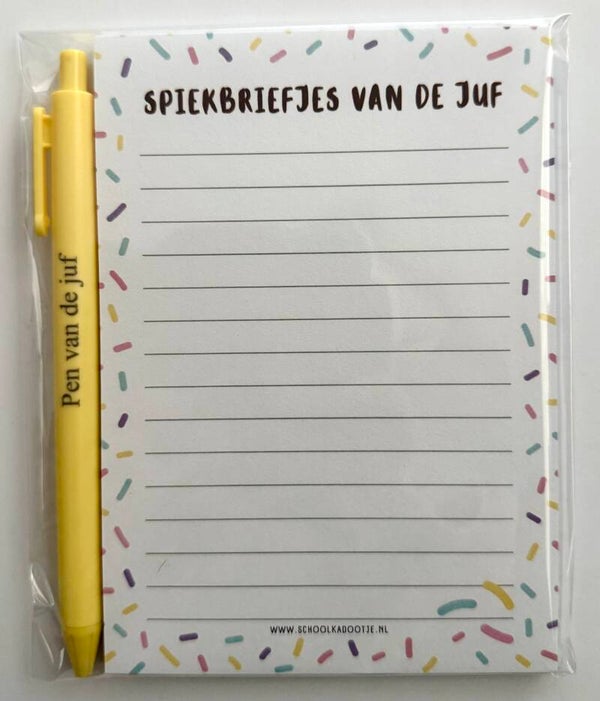 SPIEKBRIEFJES VAN DE JUF
Pen van de juf
WWW.SCHOOLKADOOTJE.NL